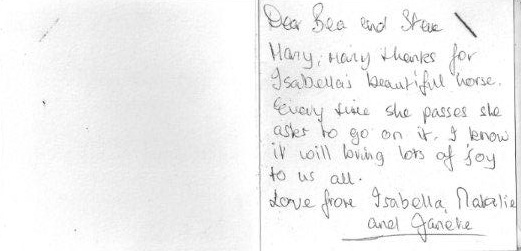 Dear Bea and Steve
Many, many thanks for
Isabella's beautiful horse.
Every time she passes she
asks to go on it. I know
it will bring lots of joy
to us all.
Love from Isabella, Natalie
and Janete